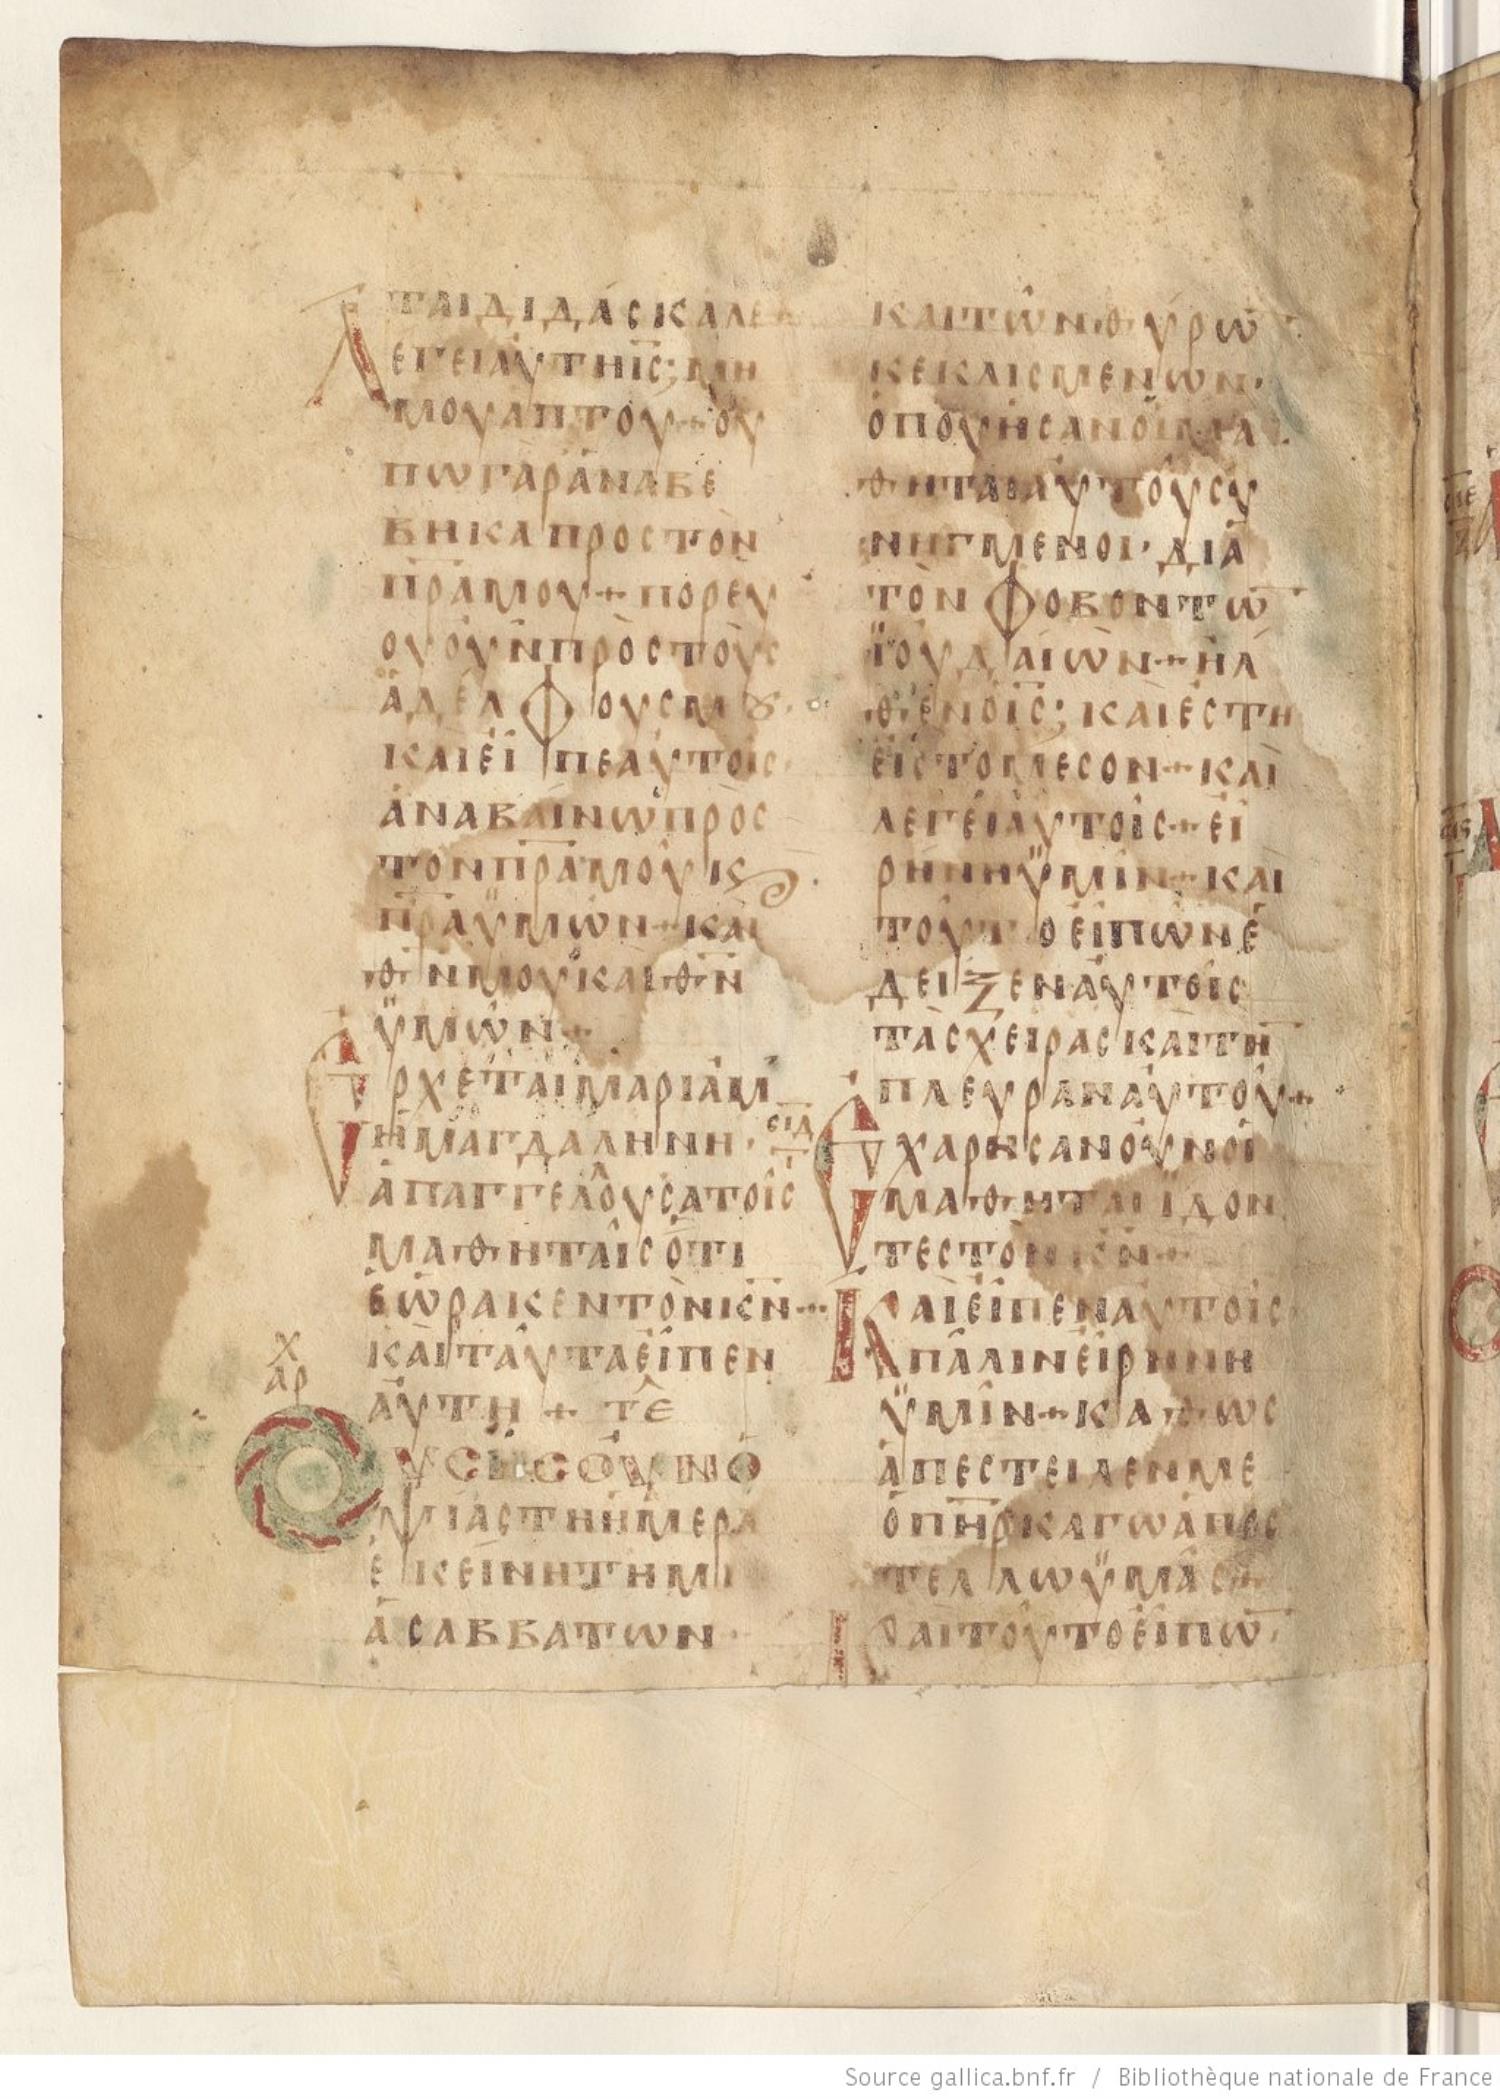 ΤΑΙΔΙΔΑΣΚΑΛΕ
ΛΕΓΕΙΑΥΤΗΙ̅Σ̅; ΜΗ
ΜΟΥΑΠΤΟΥ + ΟΥ
ΠΩΓΑΡΑΝΑΒΕ
ΒΗΚΑΠΡΟΣΤΟΝ
Π̅Ρ̅ΑΜΟΥ + ΠΟΡΕΥ
ΟΥΟΥΝΠΡΟΣΤΟΥΣ
ΑΔΕΛΦΟΥΣΜȢ·
ΚΑΙΕΙΠΕΑΥΤΟΙΣ·
ΑΝΑΒΑΙΝΩΠΡΟΣ
ΤΟΝΠ̅Ρ̅ΑΜΟΥΚϚ·
Π̅Ρ̅ΑΫΜΩΝ + ΚΑΙ
Θ̅Ν̅ΜΟΥΚΑΙΘ̅Ν̅
ΫΜΩΝ +
ΕΡΧΕΤΑΙΜΑΡΙΑΜ
ΗΜΑΓΔΑΛΗΝΗ·
ΑΠΑΓΓΕΛΟΥΣΑΤΟΙΣ
ΜΑΘΗΤΑΙΣΟΤΙ
ΕΩΡΑΚΕΝΤΟΝΚ̅Ν̅
ΚΑΙΤΑΥΤΑΕΙΠΕΝ
ΑΥΤΗ + ΤΕ
Χ
ΑΡ
ΟΥΣΗΣΟΥΝΟ
ΨΙΑΣΤΗΗΜΕΡΑ
ΕΚΕΙΝΗΤΗΜΙ
ΑΣΑΒΒΑΤΩΝ·
ΚΑΙΤΩΝΘΥΡΩ̅
ΚΕΚΛΙΣΜΕΝΩΝ·
ΟΠΟΥΗΣΑΝΟΙΜΑ
ΘΗΤΑΙΑΥΤΟΥΣΥ
ΝΗΓΜΕΝΟΙ· ΔΙΑ
ΤΟΝΦΟΒΟΝΤΩ̅
ΪΟΥΔΑΙΩΝ + ΗΛ
ΘΕΝΟΙ̅Σ̅; ΚΑΙΕΣΤΗ
ΕΙΣΤΟΜΕΣΟΝ + ΚΑΙ
ΛΕΓΕΙΑΥΤΟΙΣ + ΕΙ
ΡΗΝΗΫΜΙΝ + ΚΑΙ
ΤΟΥΤΟΕΙΠΩΝΕ
ΔΕΙΞΕΝΑΥΤΟΙΣ
ΤΑΣΧΕΙΡΑΣΚΑΙΤΗ̅
ΠΛΕΥΡΑΝΑΥΤΟΥ +
ΣΙΔ
ΕΧΑΡΗΣΑΝΟΥΝΟΙ
ΜΑΘΗΤΑΙΪΔΟΝ
ΤΕΣΤΟΝΚ̅Ν̅ +
ΚΑΙΕΙΠΕΝΑΥΤΟΙΣ·
ΠΑΛΙΝΕΙΡΗΝΗ
ΫΜΙΝ + ΚΑΘΩΣ
ΑΠΕΣΤΕΙΛΕΝΜΕ
ΟΠ̅Η̅Ρ̅ΚΑΓΩΑΠΕΣ
ΤΕΛΛΩΫΜΑΣ +
ΚΑΙΤΟΥΤΟΕΙΠΩ̅·
Source gallica.bnf.fr / Bibliothèque nationale de France